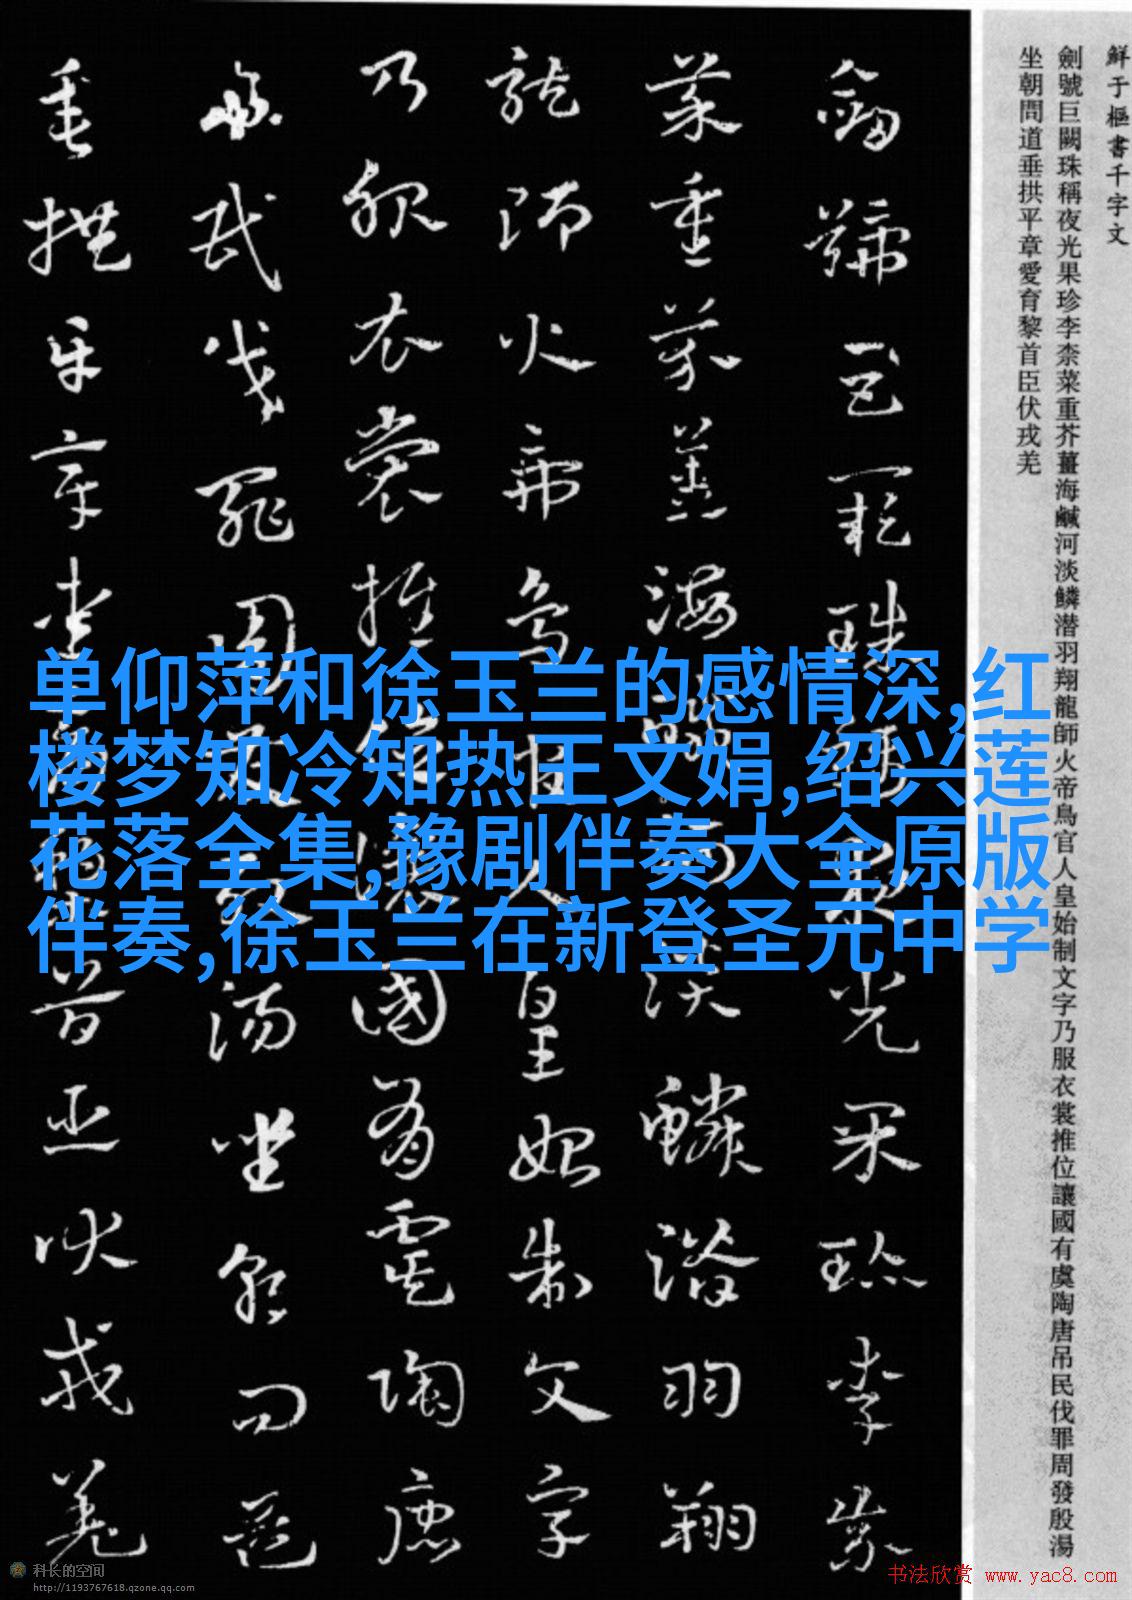 鮮于樞書千字文
劍號巨闕珠稱夜光果珍李柰菜重芥薑海鹹河淡鱗潜羽翔龍師火帝鳥官人皇始制文字乃服衣裳推位讓國有虞陶唐吊民伐罪周發殷湯
坐朝問道垂拱平章愛育黎首臣伏戎羌
劍號巨闕珠稱夜光果珍李柰
菜重芥薑海鹹河淡鱗潜羽翔
龍師火帝鳥官人皇始制文字
乃服衣裳推位讓國有虞陶唐
吊民伐罪周發殷湯坐朝問道
垂拱平章愛育黎首臣伏戎羌
单仰萍和徐玉兰的感情深,红
楼梦知冷知热王文娟,绍兴莲
花落全集,豫剧伴奏大全原版
伴奏,徐玉兰在新登圣元中学
科长的空间
http://1193767618.qzone.qq.com
书法欣赏 www.yac8.com